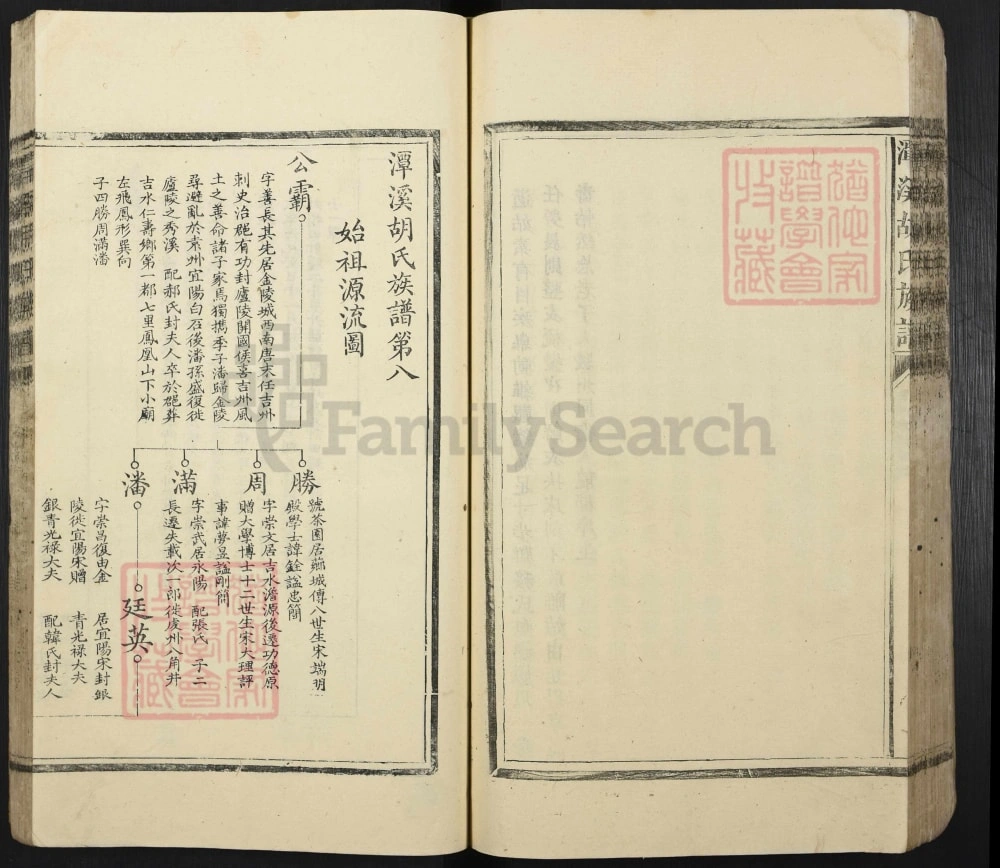 潭溪胡氏族譜
潭溪胡氏族譜第八
始祖源流圖
公霸
字善長其先居金陵城西南唐末任吉州
刺史治䄄有功封廬陵開國侯喜吉州風
土之善命諸子家焉獨攜季子潘歸金陵
尋避亂於袁州宜陽白石後潘孫盛復徙
廬陵之秀溪 配郝氏封夫人卒於䄄葬
吉水仁壽鄉第一都七里鳳凰山下小廟
左飛鳳形巽向
子四勝周滿潘
勝
號茶園居薌城傳八世生宋端明
殿學士諱銓謚忠簡
周
字崇文居吉水澹源後遷功德原
贈大學博士十二世生宋大理評
事諱夢昱謚剛簡
滿
字崇武居永陽 配張氏 子二
長遷失載次一郎徙虔州八角井
潘
字崇昌復由金
陵徙宜陽宋贈
銀青光祿大夫
廷英
居宜陽宋封銀
青光祿大夫
配韓氏封夫人
FamilySearch